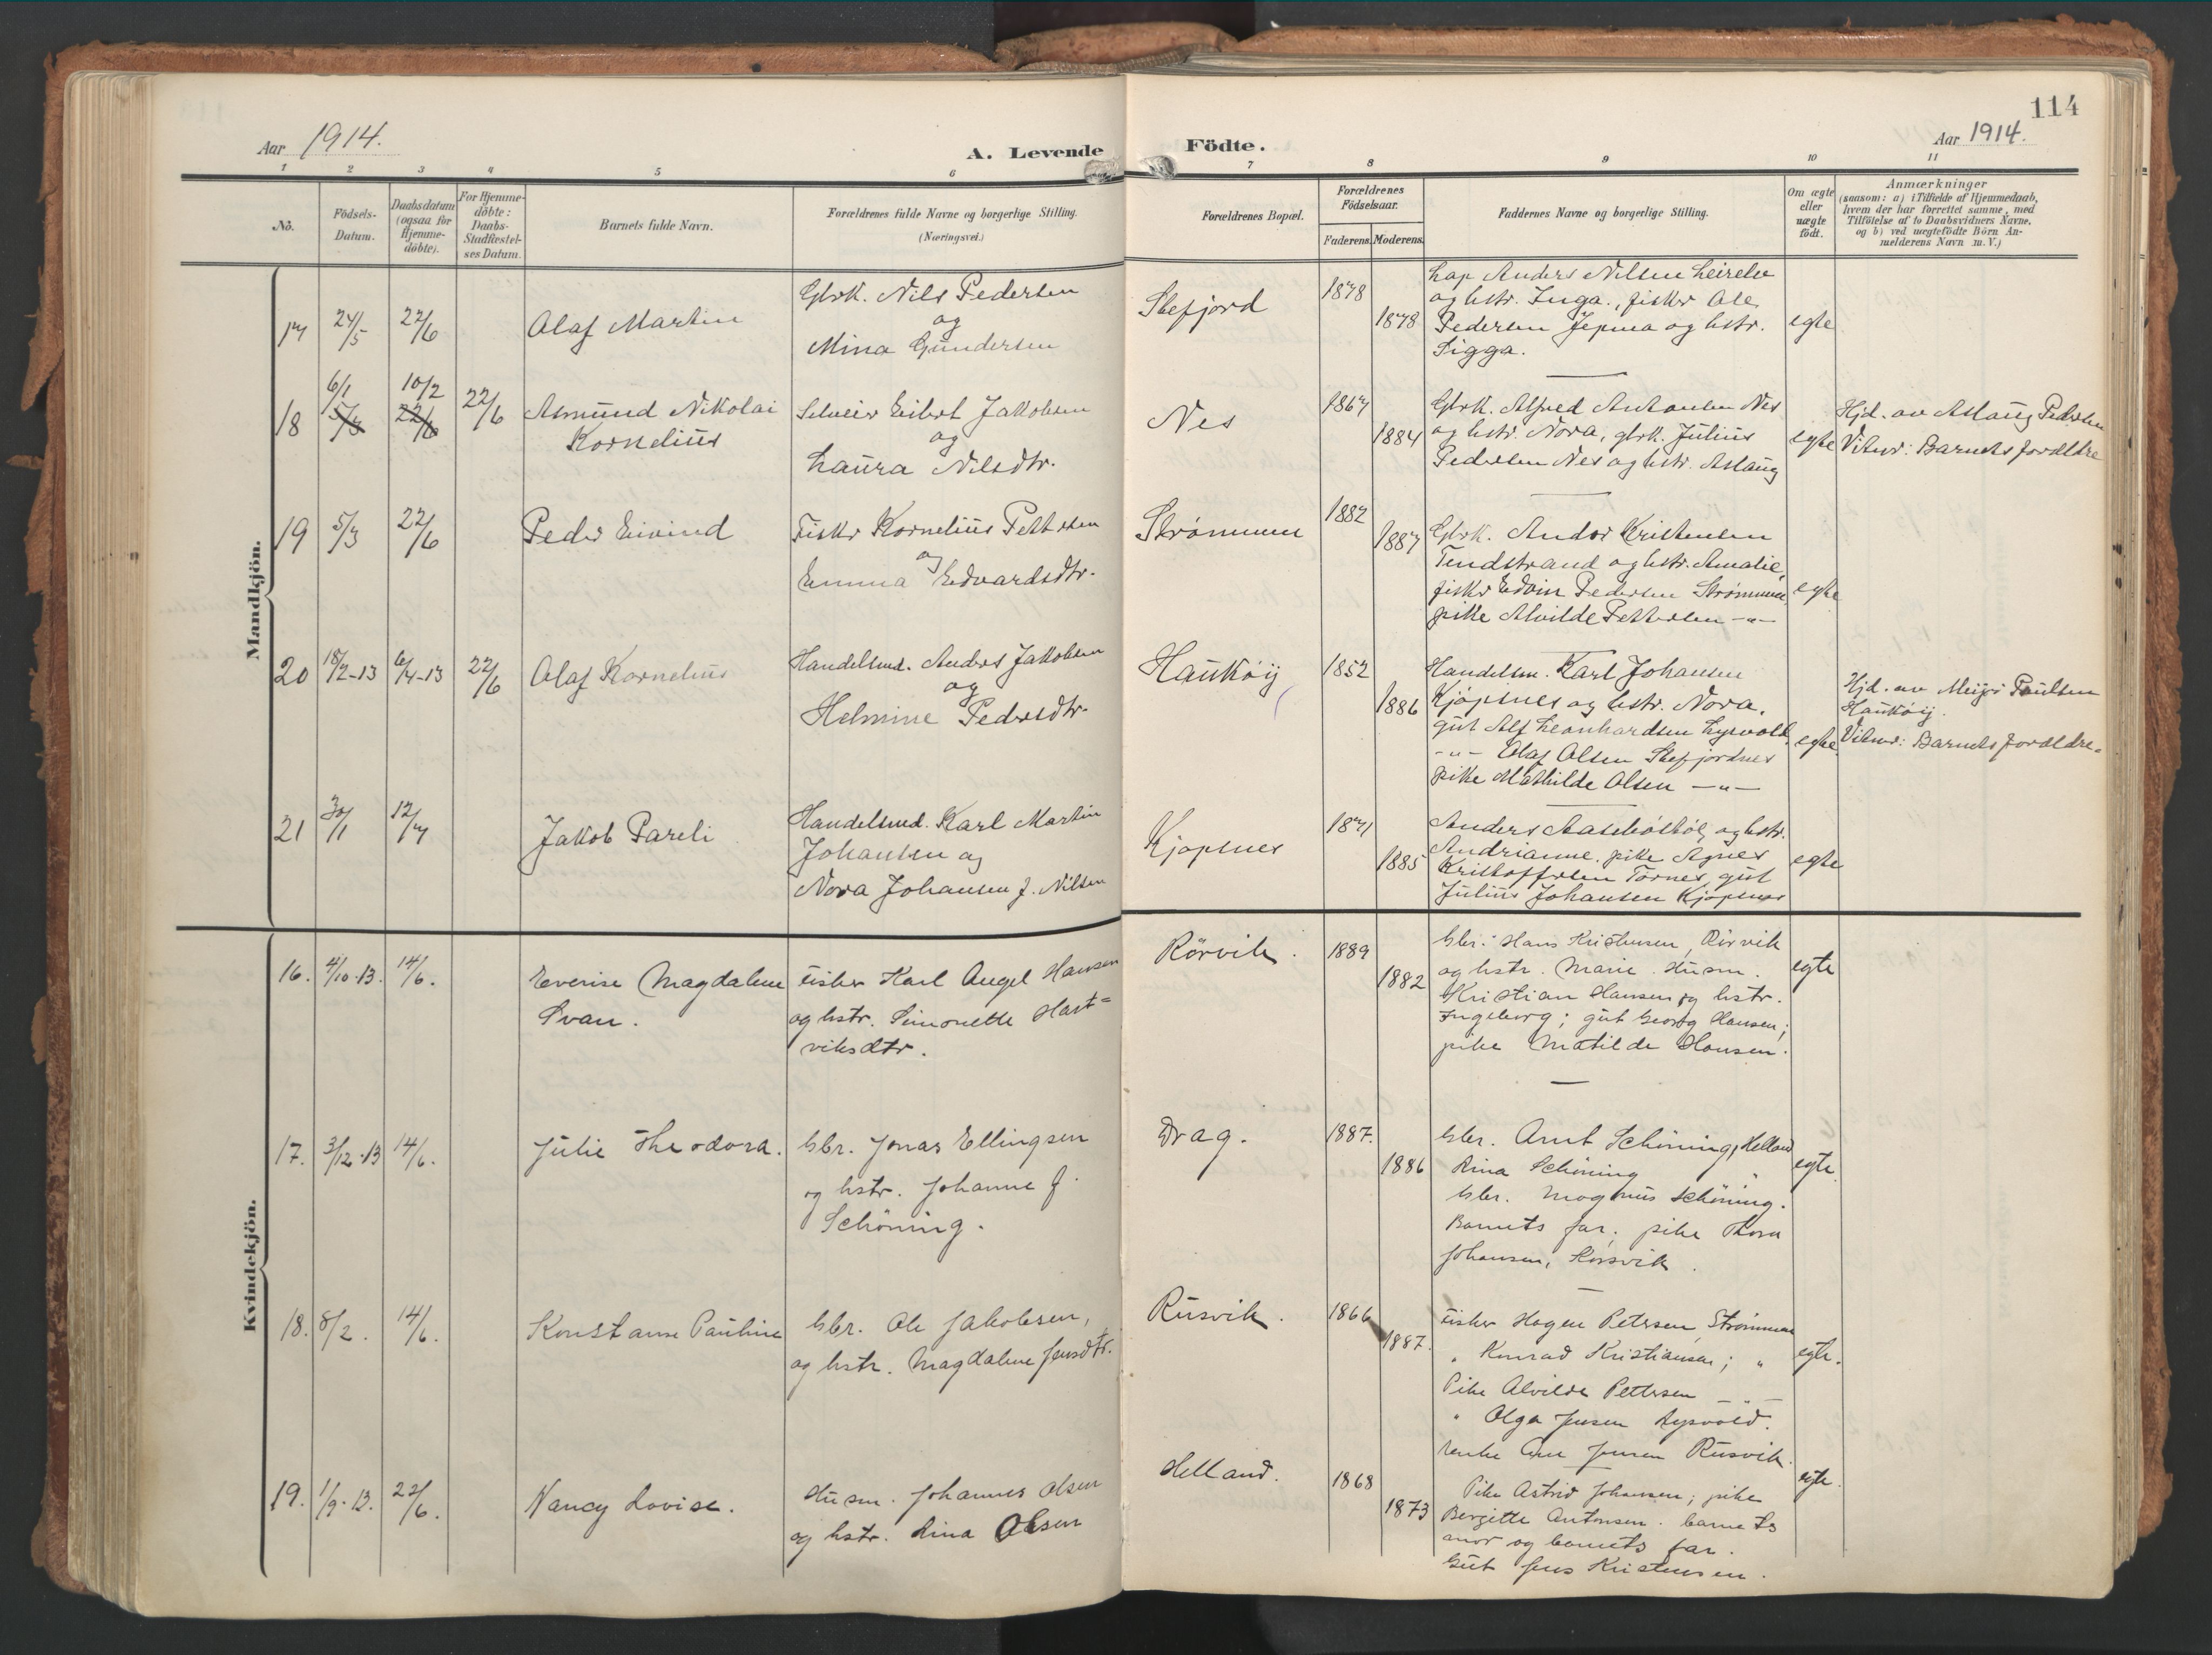 114
Aar 1914.
A. Levende Födte.
Aar 1914.
1 2 3 4 5 6 7 8 9 10 11
No.
Födsels-
Datum.
Daabsdatum
(ogsaa for
Hjemme-
döbte).
For Hjemme-
döbte:
Daabs-
Stadfæstel-
ses Datum.
Barnets fulde Navn.
Forældrenes fulde Navne og borgerlige Stilling.
(Næringsvei.)
Forældrenes Bopæl.
Forældrenes
Födselsaar.
Faderens. Moderens.
Faddernes Navne og borgerlige Stilling.
Om ægte
eller
uægte
födt.
Anmærkninger
(saasom: a) i Tilfælde af Hjemmedaab,
hvem der har forrettet samme, med
Tilföielse af to Daabsvidners Navne,
og b) ved uægtefödte Börn An-
melderens Navn m. V.)
Mandkjön.
17 24/5 22/6
Olaf Martin
Gbrk. Nils Pedersen
og
Mina Gundersen
Stefjord
1878
1878
Lap Anders Nilsen Leirelv
og hstr. Inga., fisker Ole
Pedersen Jepma og hstr.
Sigga.
egte
18 6/1 10/2 22/6
5/3 22/6
Asmund Nikolai
Kornelius
Eibert Jakobsen
og
Laura Nilsdtr.
Nes
1867
1884
Gbrk. Alfred Antonsen Nes
og hstr. Nora, gbrk. Julius
Pedersen Nes og hstr. Aslaug
egte
Hjd. av Aslaug Pedersen
Vitner: Barnets foreldre
19 5/3 22/6
Peder Eivind
Fisker Kornelius Pettersen
og
Emma Edvardsdtr.
Strømmen
1882
1887
Gbrk. Andor Kristensen
Tindstrand og hstr. Amalie,
fisker Edvin Pedersen Strømmen
pike Alvilde Pettersen -"-
egte
20 18/2-13 6/4-13 22/6
Olaf Kornelius
Handelsmd. Anders Jakobsen
og
Helmine Pedersdtr.
Haukøij
1852
1886
Handelsm. Karl Johansen
Kjøpsnes og hstr. Nora.
gut Alf Leonhardsen Lysvold
-"- Olaf Olsen Stefjordnes
pike Mathilde Olsen -"-
egte
Hjd. av Meijer Paulsen
Haukøij.
Vitner: Barnets foreldre.
21 30/1 12/7
Jakob Pareli
Handelsmd. Karl Martin
Johansen og
Nora Johansen f. Nilsen
Kjøpsnes
1871
1885
Anders og hstr.
Andrianne. pike Agnes
Kristoffersen Tørnes, gut
Julius Johansen Kjøpsnes
egte
Kvindekjön.
16. 4/10-13. 14/6.
Everine Magdalene
Svan.
Fisker Karl Angel Hansen
og hstr. Simonette Hart=
viksdtr.
Rörvik.
1889
1882
Gbr. Hans Kristensen, Rörvik
og hstr. Marie. Husm.
Kristian Hansen og hstr.
Ingeborg; gut Georg Hansen;
pike Matilde Hansen.
egte
17. 3/12-13 14/6.
Julie Theodora.
Gbr. Jonas Ellingsen
og hstr. Johanne f.
Schöning.
Drag.
1887.
1886
Gbr. Arnt Schöning, Helland
Rina Schöning "
Gbr. Magnus Schöning.
Barnets far; pike Thora
Johansen, Korsvik.
egte.
18. 8/2. 14/6.
Konstanse Pauline
Gbr. Ole Jakobsen,
og hstr. Magdalene Jensdtr.
Rusvik.
1866
1887.
Fisker Hagen Petersen, Strömmen
" Konrad Kristiansen; "
Pike Alvilde Pettersen - " -
" Olga Jensen Lysvold.
enke Jensen Rusvik.
egte.
19. 1/9-13. 22/6.
Nancy Lovise.
Husm. Johannes Olsen
og hstr. Rina Olsen
Helland.
1868
1873
Pike Astrid Johansen; pike
Bergitte Antonsen. barnets
mor og barnets far.
Gut Jens Kristensen.
egte.